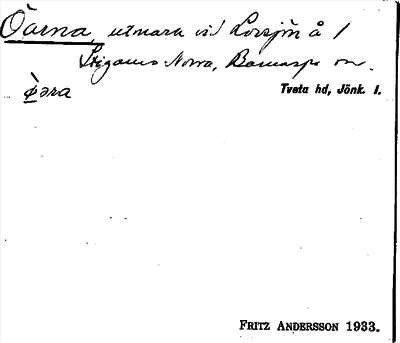 Öarna, utmark vid Lovsjön å /
Stigamo Norra, Barnarps sn.
ø̀əra
Tveta hd, Jönk. l.
FRITZ ANDERSSON 1933.